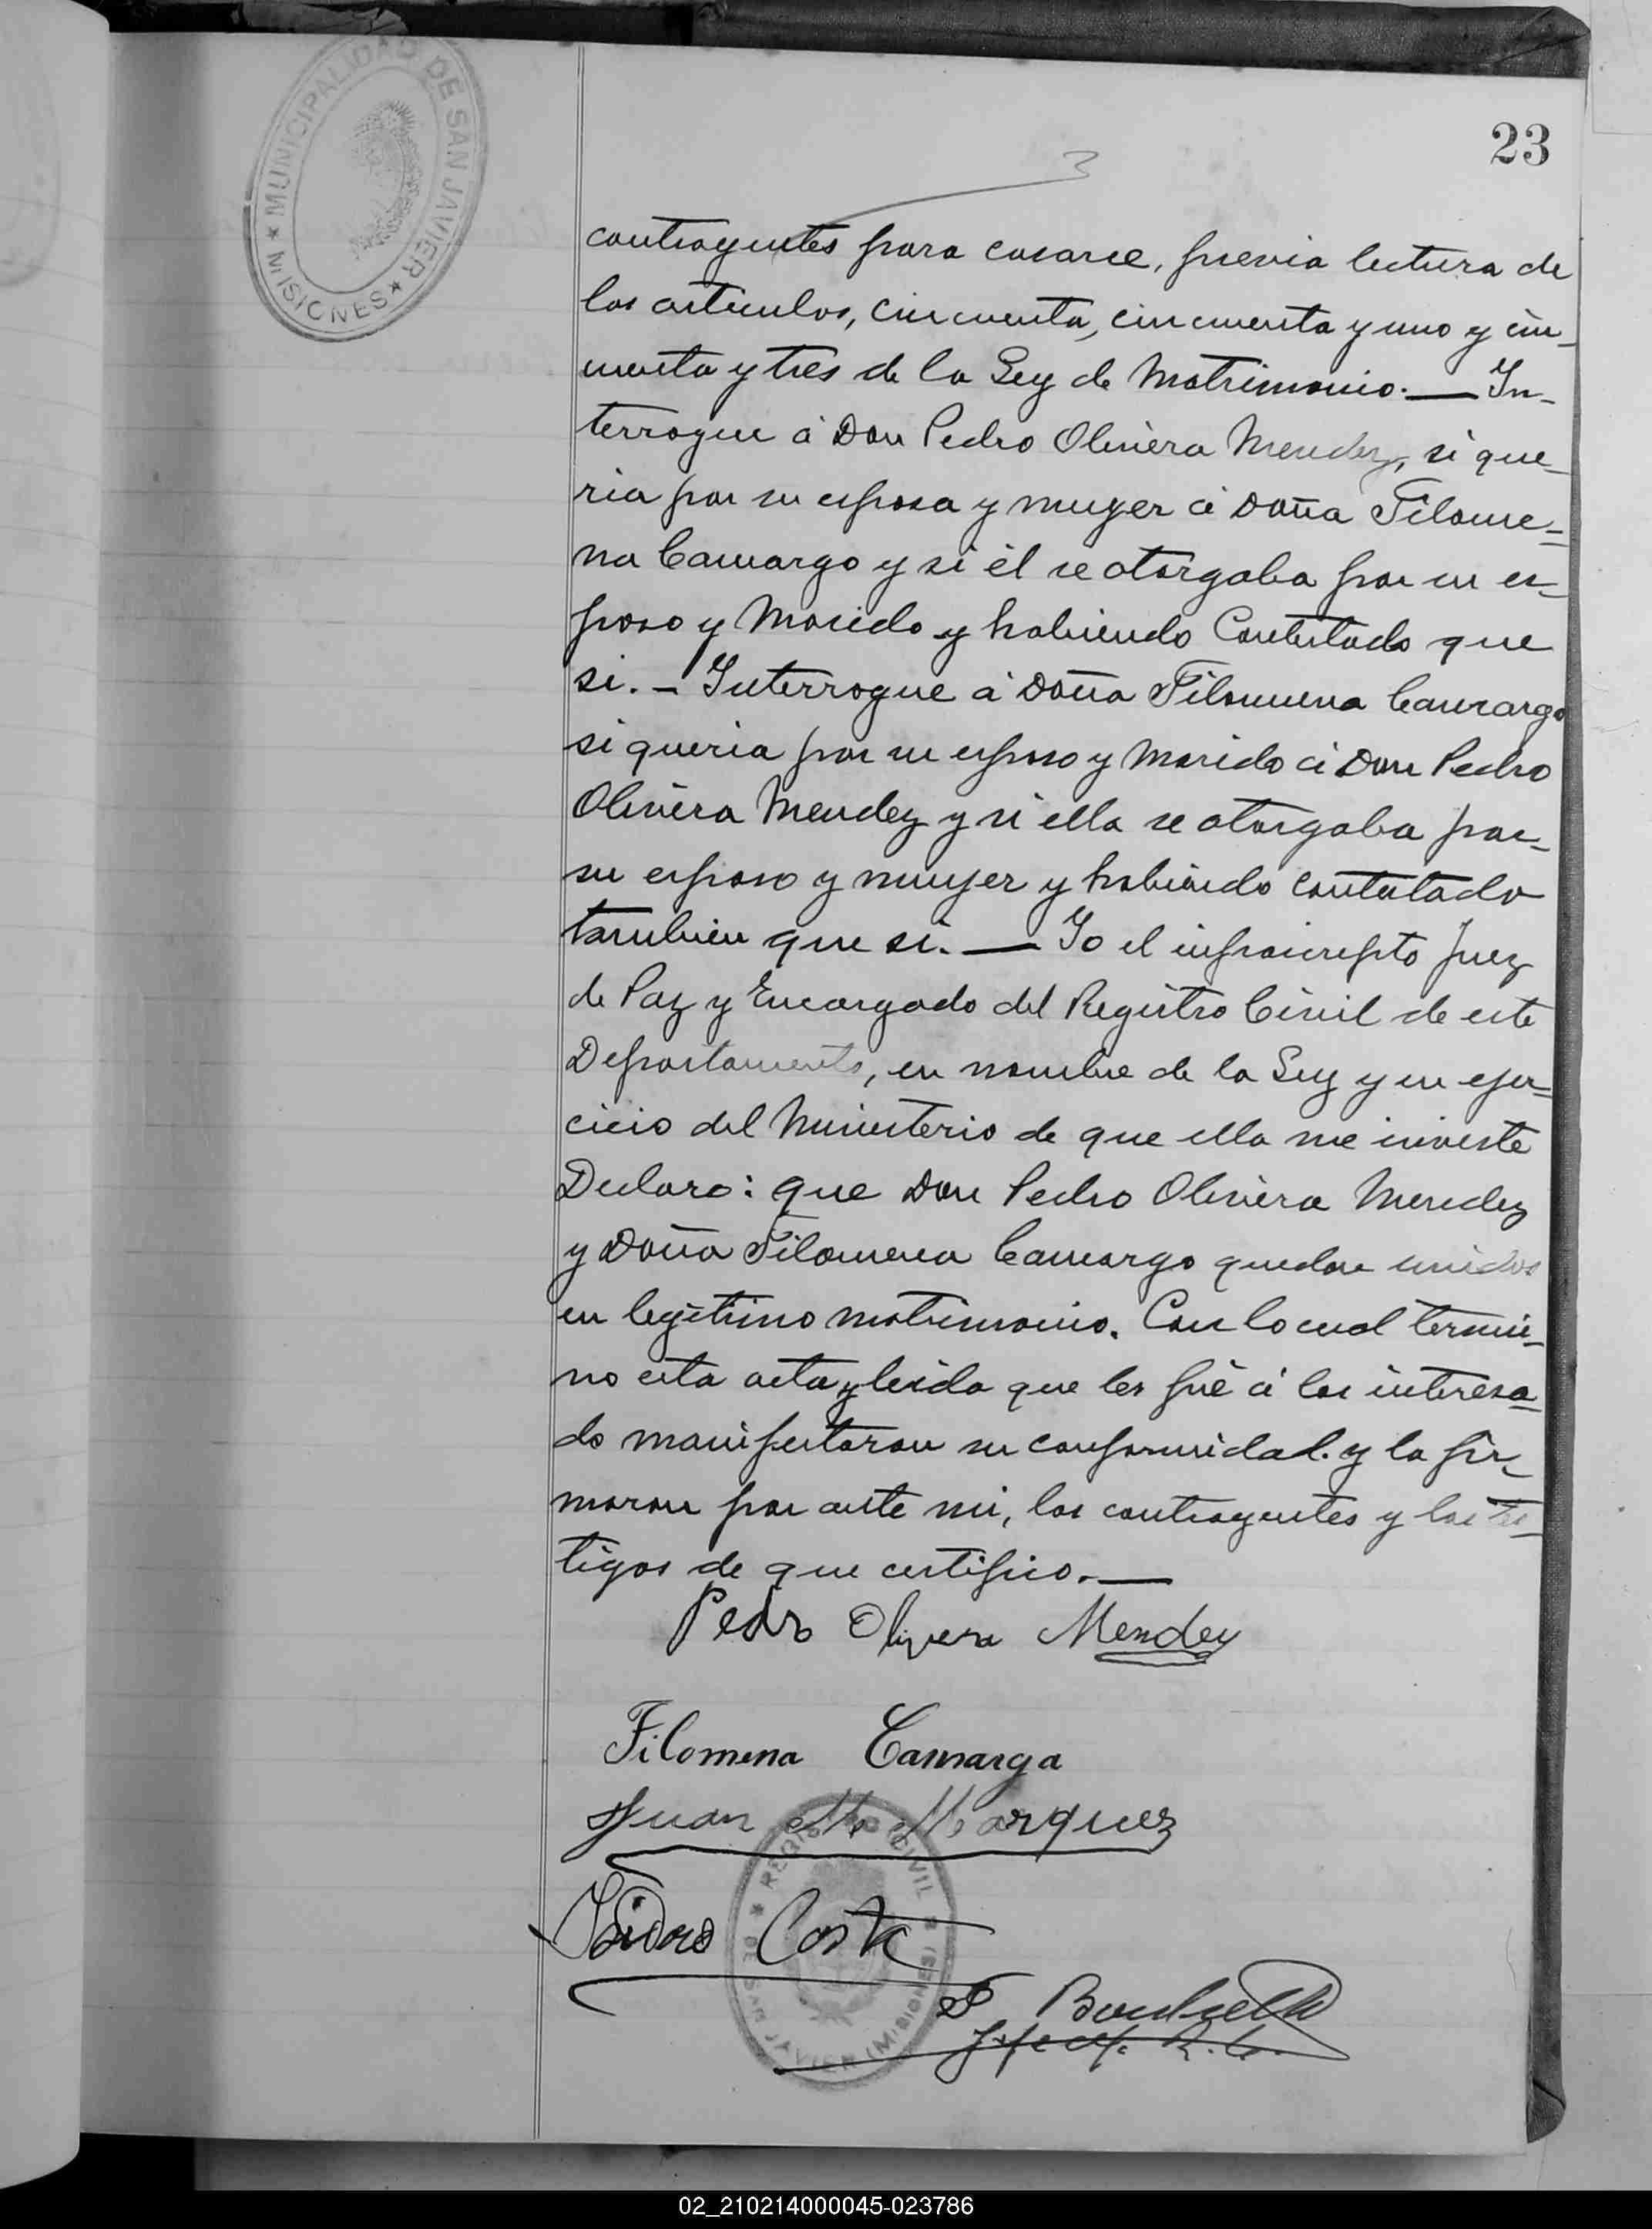 MUNICIPALIDAD DE SAN JAVIER
★ MISIONES ★
23
3
contrayentes para casarse, previa lectura de
los articulos, cincuenta, cincuenta y uno y cin-
cuenta y tres de la Ley de Matrimonio.— In-
terrogue á Don Pedro Olivera Mendez, si que-
ria por su esposa y mujer á Doña Filome-
na Camargo y si él se otorgaba por su es-
poso y Marido y habiendo Contestado que
si.- Interrogue á Doña Filomena Camargo
si queria por su esposo y Marido á Don Pedro
Olivera Mendez y si ella se otorgaba por
su esposo y mujer y habiendo contestado
tambien que si.— Yo el infrascripto Juez
de Paz y Encargado del Registro Civil de este
Departamento, en nombre de la Ley y en ejer-
cicio del Ministerio de que ella me inviste
Declaro: que Don Pedro Olivera Mendez
y Doña Filomena Camargo quedan unidos
en legítimo matrimonio. Con lo cual termi-
no esta acta y leida que les fué á los interesa-
do manifestaron su conformidad. y la fir-
maron por ante mi, los contrayentes y los tes-
tigos de que certifico.—
Pedro Olivera Mendez
Filomena Camarga
Juan M. Marquez
Isidro Costa
REGISTRO CIVIL
DE SAN JAVIER (MISIONES)
Jefe del R. C.
02_210214000045-023786